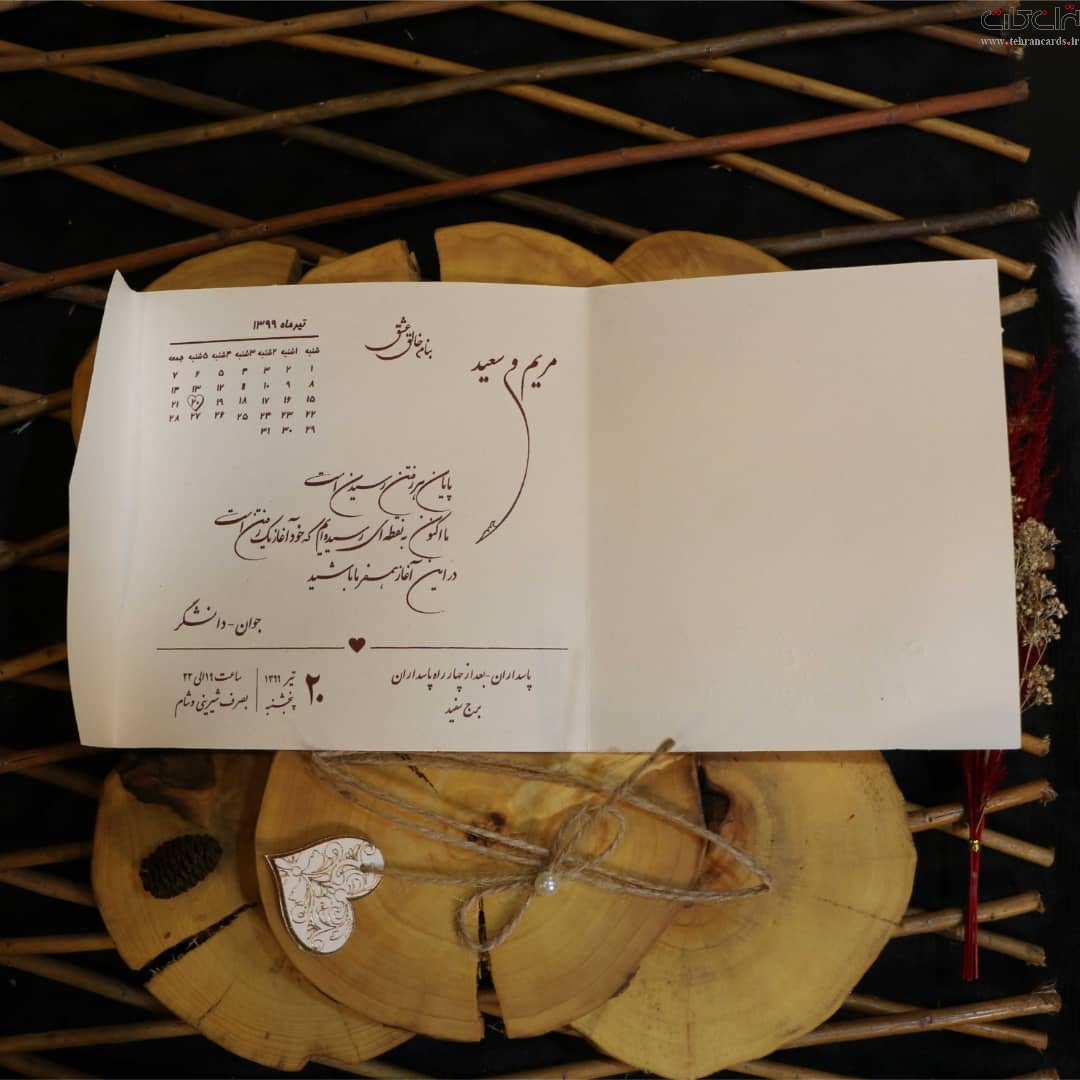 تهران کارت
www.tehrancards.ir
بنام خالق عشق
مریم و سعید
تیرماه ۱۳۹۹
شنبه ۱شنبه ۲شنبه ۳شنبه ۴شنبه ۵شنبه جمعه
۱ ۲ ۳ ۴ ۵ ۶ ۷
۸ ۹ ۱۰ ۱۱ ۱۲ ۱۳ ۱۴
۱۵ ۱۶ ۱۷ ۱۸ ۱۹ ۲۰ ۲۱
۲۲ ۲۳ ۲۴ ۲۵ ۲۶ ۲۷ ۲۸
۲۹ ۳۰ ۳۱
پایان هر رفتن رسیدن است
ما اکنون به نقطه ای رسیده ایم که خود آغاز یک رفتن است
در این آغاز همسفر ما باشید
جوان - دانشگر
پاسداران - بعد از چهار راه پاسداران
برج سفید
۲۰ تیر ۱۳۹۹
پنجشنبه
ساعت ۱۹ الی ۲۳
بصرف شیرینی و شام